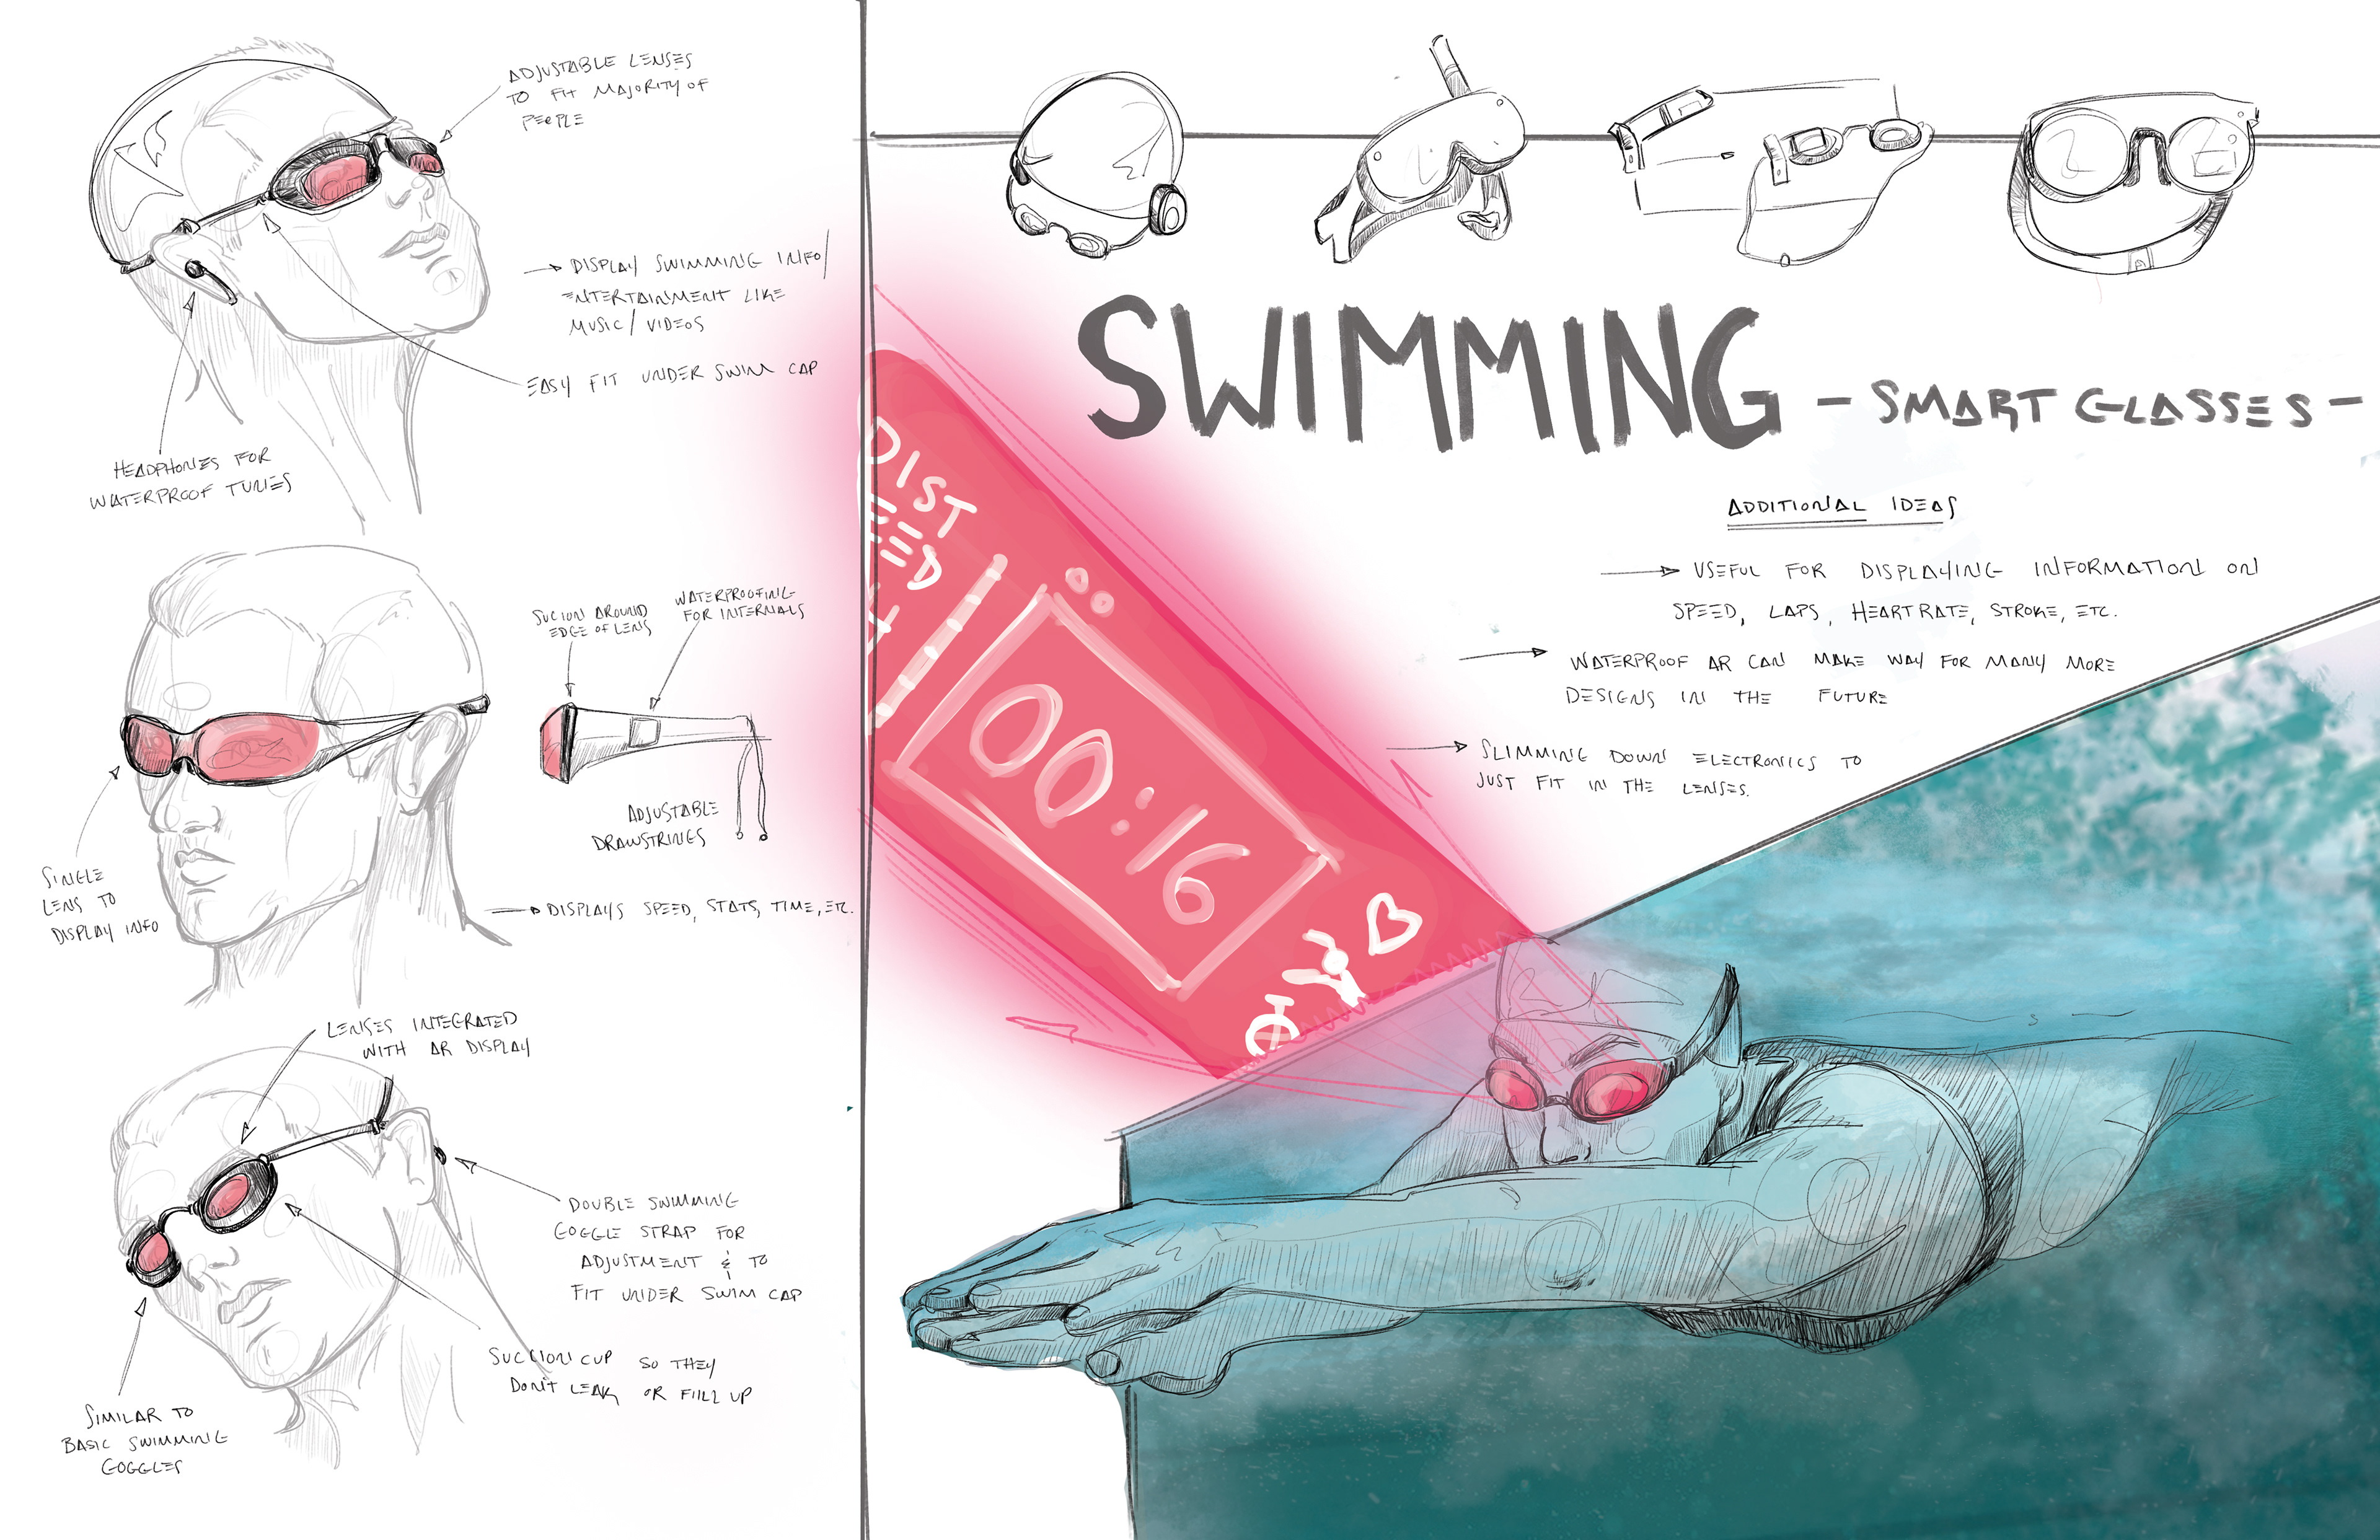 ADJUSTABLE LENSES
TO FIT MAJORITY OF
PEOPLE
DISPLAY SWIMMING INFO/
ENTERTAINMENT LIKE
MUSIC/VIDEOS
EASY FIT UNDER SWIM CAP
HEADPHONES FOR
WATERPROOF TUNES
SUCION AROUND
EDGE OF LENS
WATERPROOFING
FOR INTERNALS
ADJUSTABLE
DRAWSTRINGS
SINGLE
LENS TO
DISPLAY INFO
DISPLAYS SPEED, STATS, TIME, ETC.
LENSES INTEGRATED
WITH AR DISPLAY
DOUBLE SWIMMING
GOGGLE STRAP FOR
ADJUSTMENT & TO
FIT UNDER SWIM CAP
SUCTION CUP SO THEY
DON'T LEAK OR FILL UP
SIMILAR TO
BASIC SWIMMING
GOGGLES
SWIMMING - SMART GLASSES -
ADDITIONAL IDEAS
USEFUL FOR DISPLAYING INFORMATION ON
SPEED, LAPS, HEART RATE, STROKE, ETC.
WATERPROOF AR CAN MAKE WAY FOR MANY MORE
DESIGNS IN THE FUTURE
SLIMMING DOWN ELECTRONICS TO
JUST FIT IN THE LENSES.
DIST
EED
00:16